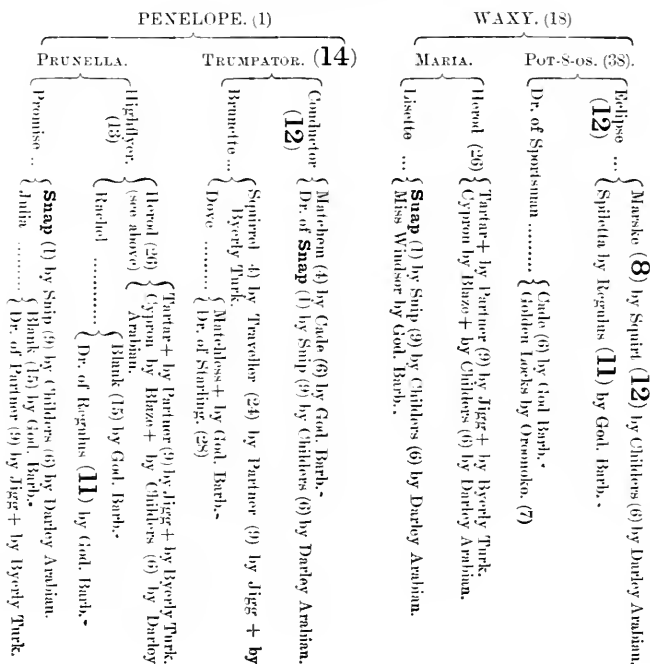 PENELOPE. (1)
WAXY. (18)
PRUNELLA.
TRUMPATOR. (14)
MARIA.
POT-8-os. (38).
Eclipse ...
(12)
Marske (8) by Squirt (12) by Childers (6) by Darley Arabian.
Spiletta by Regulus (11) by God. Barb.
Dr. of Sportsman ..........
Cade (6) by God Barb.
Golden Locks by Oroonoko. (7)
Herod (26)
Tartar+ by Partner (9) by Jigg+ by Byerly Turk.
Cypron by Blaze+ by Childers (6) by Darley Arabian.
Lisette ...
Snap (1) by Snip (9) by Childers (6) by Darley Arabian.
Miss Windsor by God. Barb.
Conductor
(12)
Matchem (4) by Cade (6) by God. Barb.
Dr. of Snap (1) by Snip (9) by Childers (6) by Darley Arabian.
Brunette ...
Squirrel (4) by Traveller (24) by Partner (9) by Jigg + by
Byerly Turk.
Dove ..........
Matchless+ by God. Barb.
Dr. of Starling. (28)
Highflyer.
(13)
Herod (26)
(see above)
Tartar+ by Partner (9) by Jigg+ by Byerly Turk.
Cypron by Blaze+ by Childers (6) by Darley
Arabian.
Rachel ..............
Blank (15) by God. Barb.
Dr. of Regulus (11) by God. Barb.
Promise ..
Snap (1) by Snip (9) by Childers (6) by Darley Arabian.
Julia ..........
Blank (15) by God. Barb.
Dr. of Partner (9) by Jigg+ by Byerly Turk.